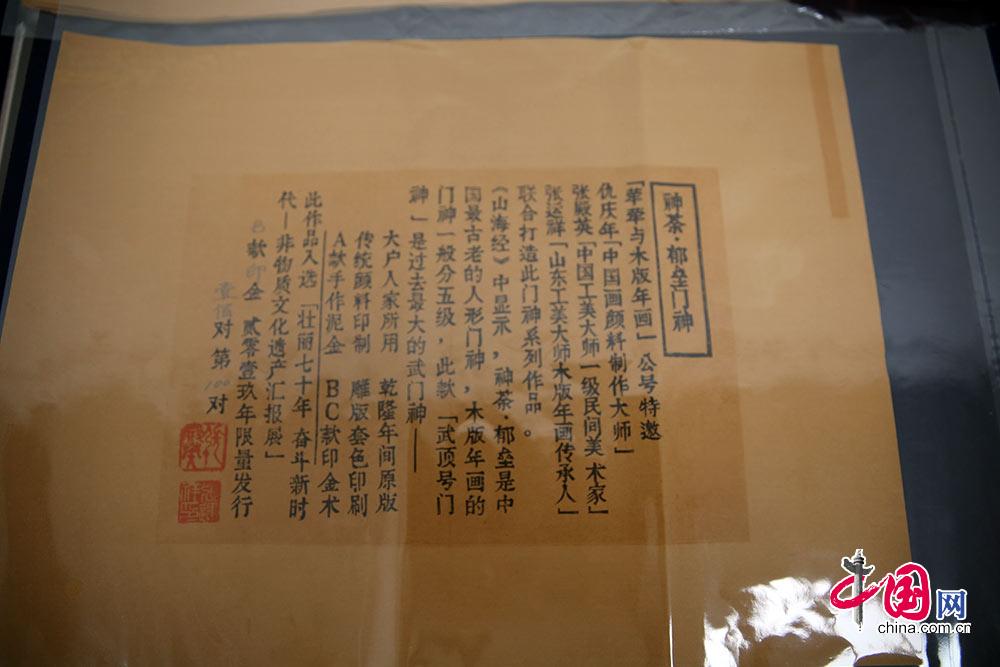 神荼·郁垒门神
「荦荦与木版年画」公号特邀
仇庆年「中国画颜料制作大师」
张殿英「中国工美大师一级民间美术家」
张运祥「山东工美大师木版年画传承人」
联合打造此门神系列作品。
《山海经》中显示，神荼·郁垒是中
国最古老的人形门神，木版年画的
门神一般分五级，此款「武顶号门
神」是过去最大的武门神——
大户人家所用 乾隆年间原版
传统颜料印制 雕版套色印刷
A款手作泥金 BC款印金术
此作品入选「壮丽七十年 奋斗新时
代—非物质文化遗产汇报展」
款印金 贰零壹玖年限量发行
壹佰对 第100对
中国网
china.com.cn